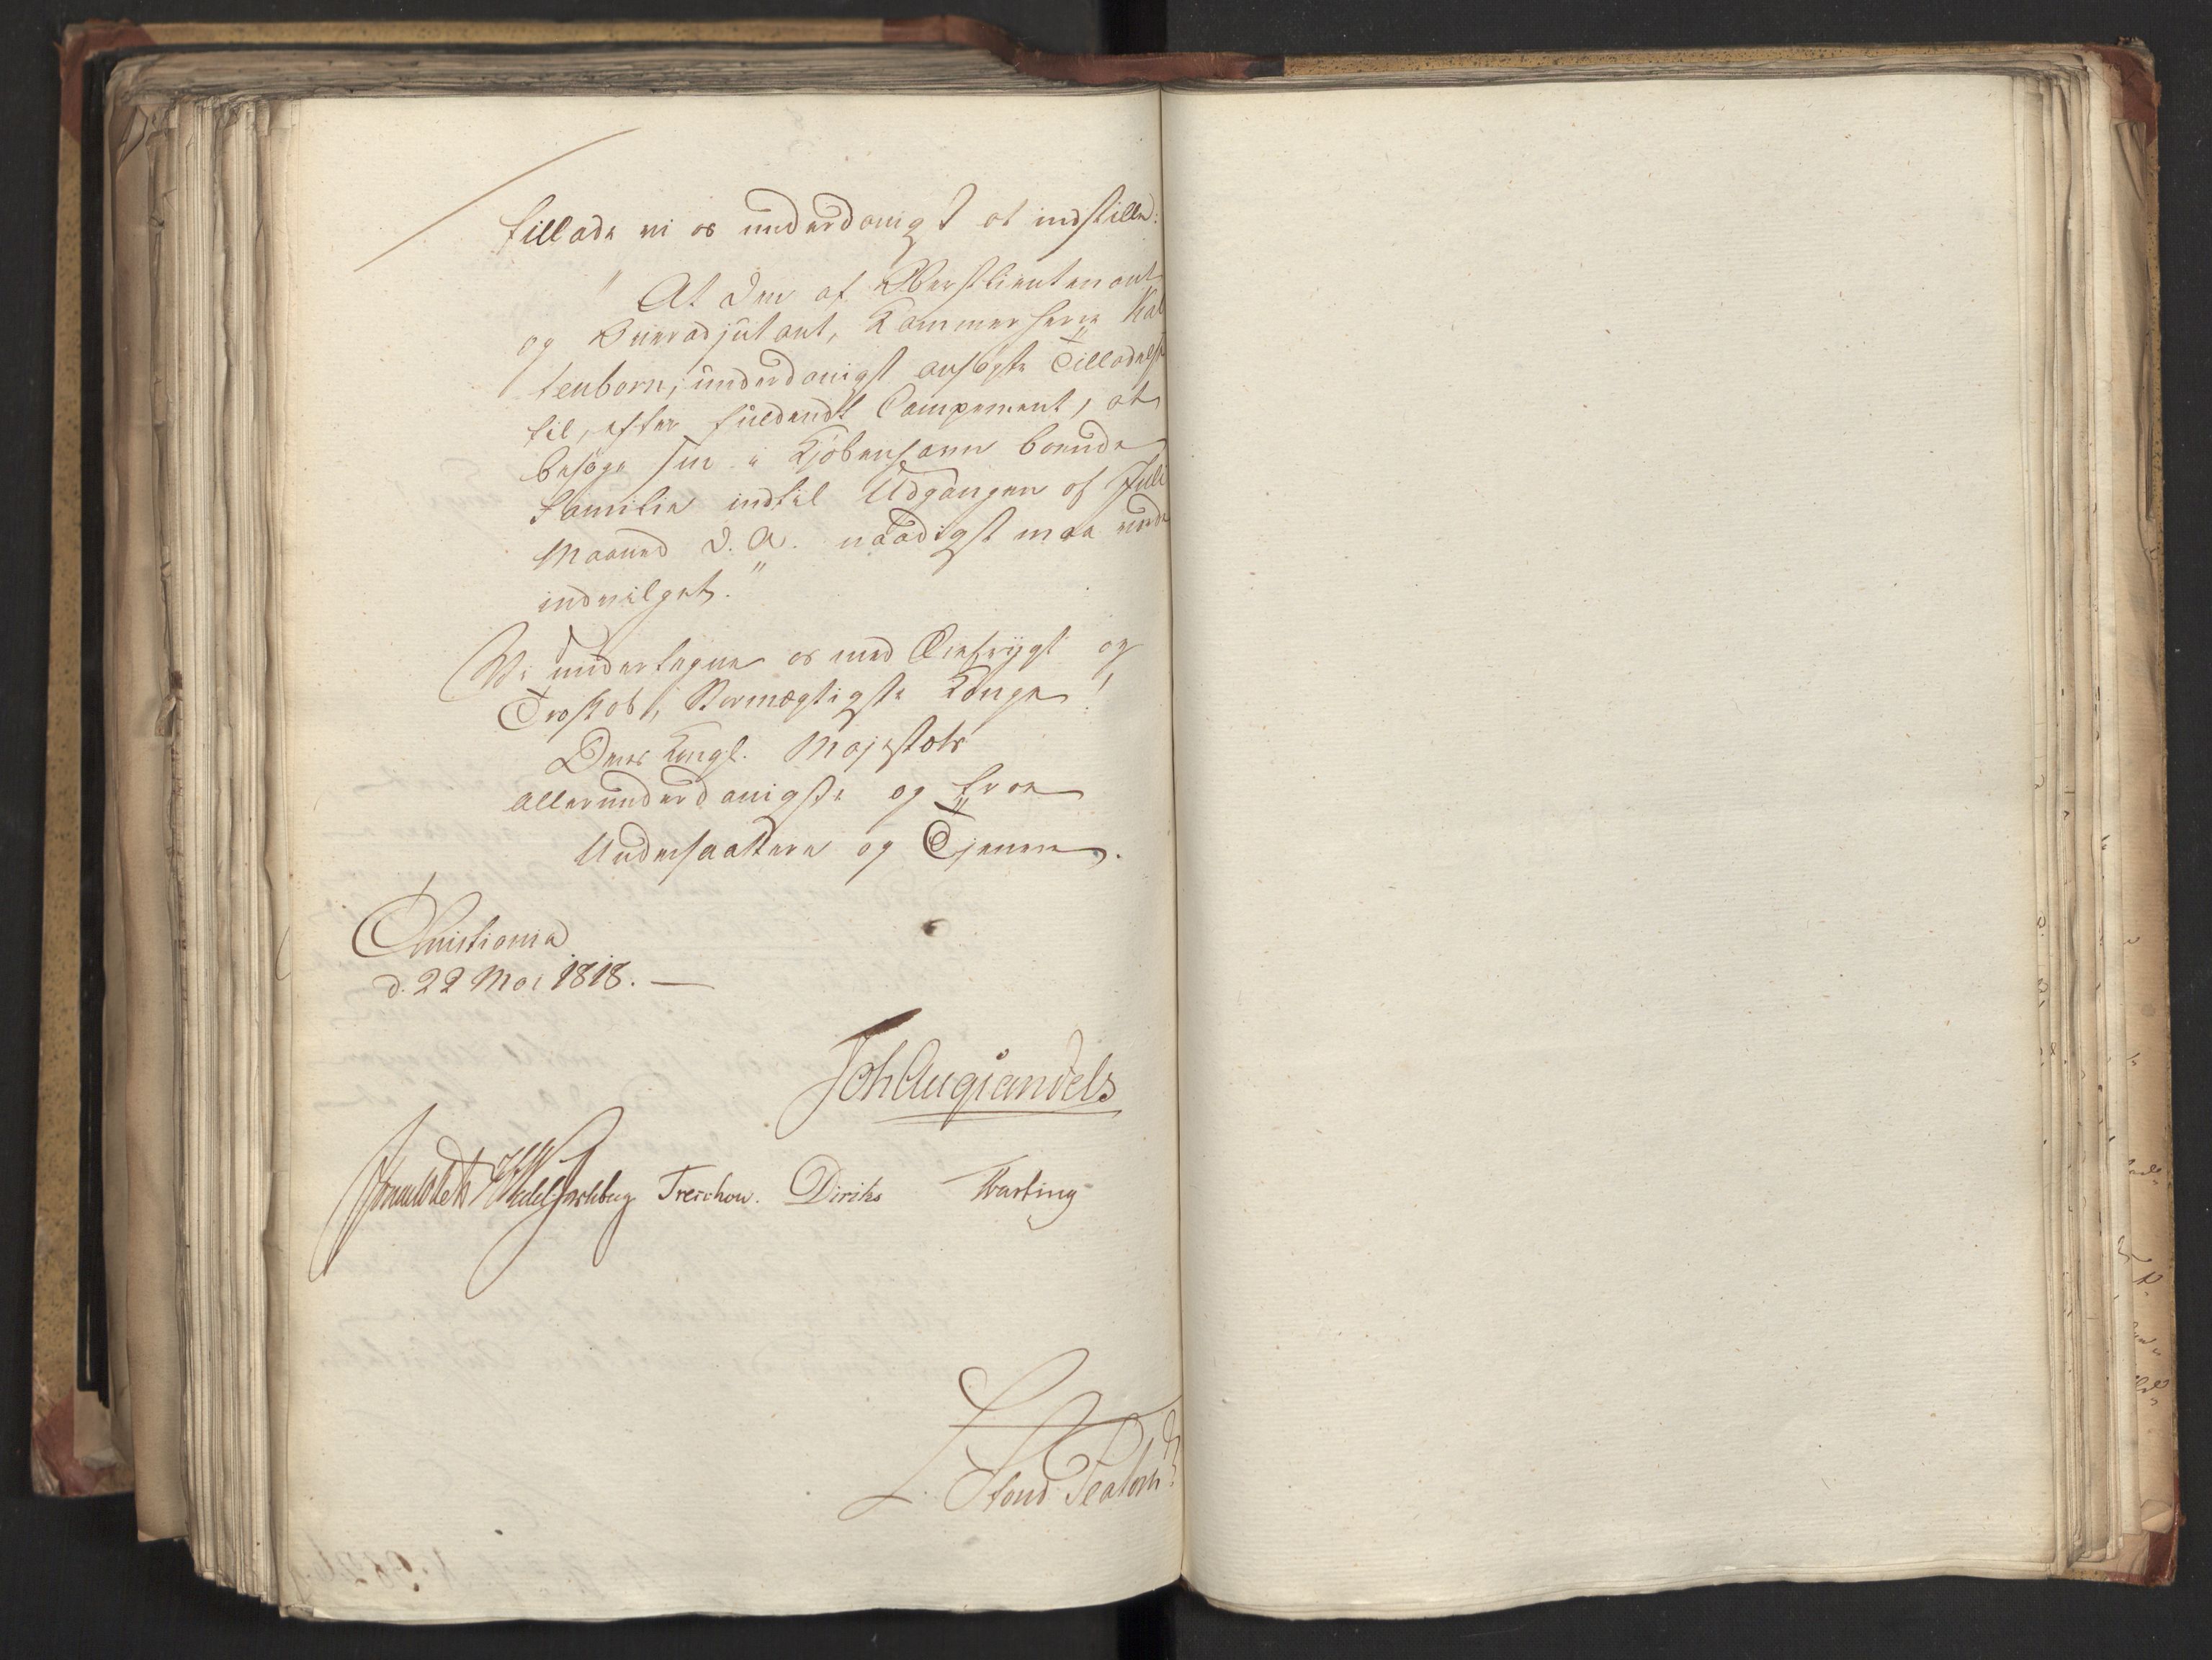 tillade vi os underdanigst at indstille:
"At den af Oberstlieutenant
og Overadjutant, Kammerherre Kal
tenborn, underdanigst ansøgte Tilladelse
til, efter fuldendt Campement, at
besøge sin i Kjøbenhavn boende
Familie indtil Udgangen af Juli
Maaned d. A. naadigst maa vorde
indvilget."
Vi undertegne os med Ærefrygt og
Troskab, Stormægtigste Konge!
Deres Kongl. Majestæts
allerunderdanigste og troe
Undersaattere og Tjenere.
Christiania
d. 22 Mai 1818. —
Joh Aug Sandels
Sommerhielm HWedel Jarlsberg Treschow. Diriks Fasting